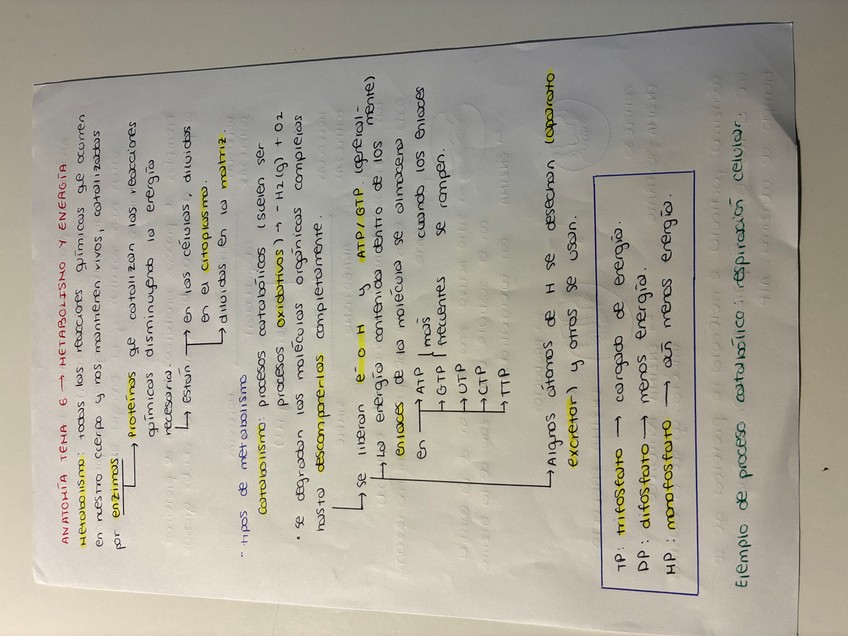 ANATOMÍA TEMA 6 → METABOLISMO Y ENERGÍA
Metabolismo: todas las reacciones químicas qe ocurren
en nuestro cuerpo y nos mantienen vivos, catalizadas
por enzimas.
→ Proteínas qe catalizan las reacciones
químicas disminuyendo la energía
necesaria.
→ Están → en las células, diluidas
en el citoplasma.
→ diluidas en la matriz.
- Tipos de metabolismo
catabolismo: procesos catabólicos (suelen ser
procesos oxidativos) → - H2(g) + O2
• Se degradan las moléculas orgánicas complejas
hasta descomponerlas completamente.
→ Se liberan e- o H y ATP/GTP (general-
→ La energía contenida dentro de los mente)
enlaces de la molécula se almacena
en → ATP más cuando los enlaces
→ GTP frecuentes se rompen.
→ UTP
→ CTP
→ TTP
→ Algunos átomos de H se desechan (aparato
excretor) y otros se usan.
TP: trifosfato → cargado de energía.
DP: difosfato → menos energía.
MP: monofosfato → aún menos energía.
Ejemplo de proceso catabólico: respiración celular.